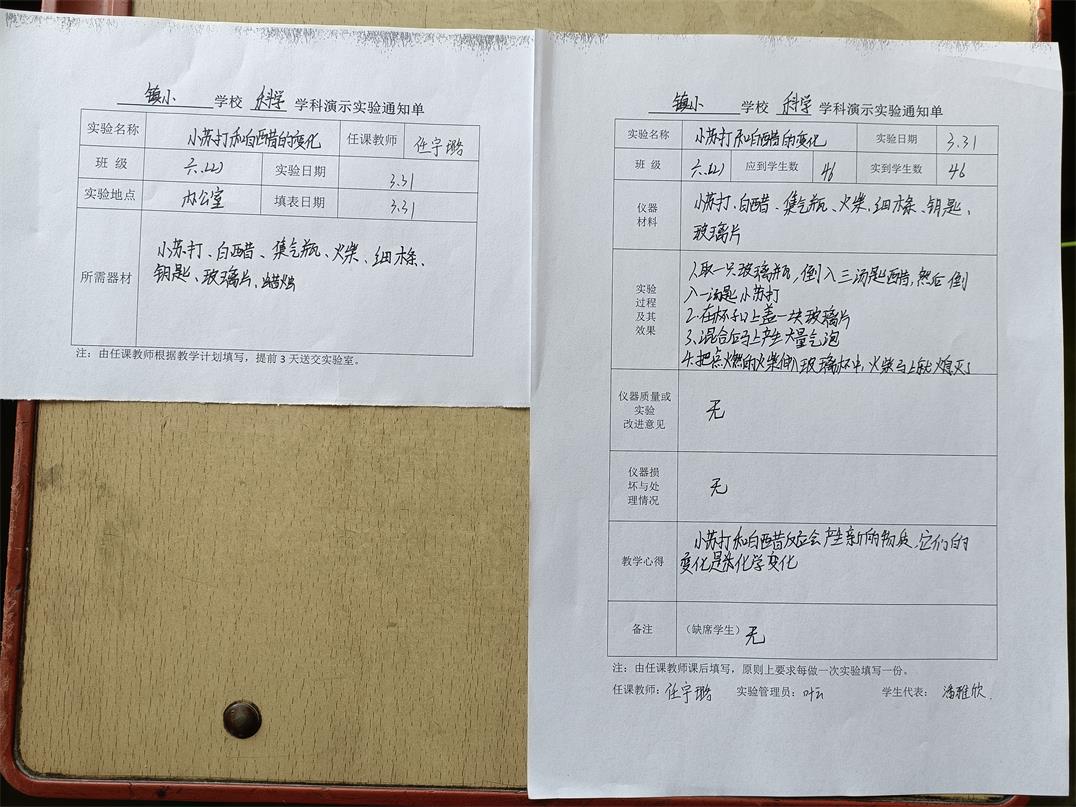 镇小 学校 科学 学科演示实验通知单
实验名称 小苏打和白醋的变化 任课教师 任宇璐
班 级 六.(2) 实验日期 3.31
实验地点 办公室 填表日期 3.31
所需器材 小苏打、白醋、集气瓶、火柴、细木条、
钥匙、玻璃片、蜡烛
注：由任课教师根据教学计划填写，提前 3 天送交实验室。
镇小 学校 科学 学科演示实验通知单
实验名称 小苏打和白醋的变化 实验日期 3.31
班 级 六.(2) 应到学生数 46 实到学生数 46
仪器
材料
小苏打、白醋、集气瓶、火柴、细木条、钥匙、
玻璃片
实验
过程
及其
效果
1.取一只玻璃瓶，倒入三汤匙白醋，然后倒
入一汤匙小苏打
2.在杯子口上盖一块玻璃片
3.混合后马上产生大量气泡
4.把点燃的火柴伸入玻璃杯中，火柴马上就熄灭了
仪器质量或
实验
改进意见
无
仪器损
坏与处
理情况
无
教学心得
小苏打和白醋反应会产生新的物质，它们的
变化是化学变化
备注 （缺席学生）无
注：由任课教师课后填写，原则上要求每做一次实验填写一份。
任课教师：任宇璐 实验管理员：叶云 学生代表：潘雅欣